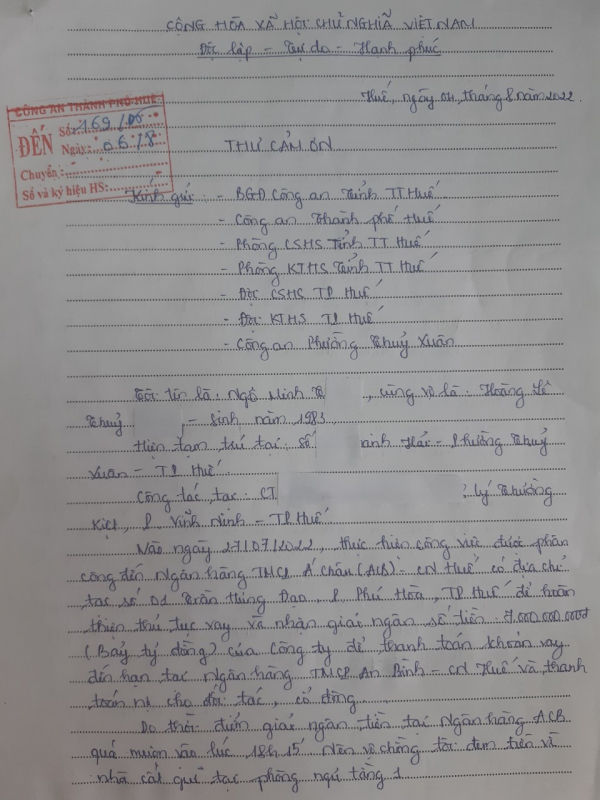 CỘNG HÒA XÃ HỘI CHỦ NGHĨA VIỆT NAM
Độc lập - Tự do - Hạnh phúc
Huế, ngày 04, tháng 8 năm 2022
CÔNG AN THÀNH PHỐ HUẾ
ĐẾN
Số: 169/
Ngày: 06/8
Chuyển:
Số và ký hiệu HS:
THƯ CẢM ƠN
Kính gửi: - BGĐ Công an Tỉnh TT Huế
- Công an Thành phố Huế
- Phòng CSHS Tỉnh TT Huế
- Phòng KTHS Tỉnh TT Huế
- Đội CSHS TP Huế
- Đội KTHS TP Huế
- Công an Phường Thuỷ Xuân
Tôi tên là: Ngô Minh, cùng vợ là: Hoàng Lê
Thuỷ - Sinh năm 1983
Hiện tạm trú tại: Số Hải - Phường Thuỷ
Xuân - TP Huế
Công tác tại: CT Lý Thường
Kiệt, P Vĩnh Ninh - TP Huế
Vào ngày 27/07/2022, thực hiện công việc được phân
công đến Ngân hàng TMCP Á Châu (ACB) - CN Huế có địa chỉ
tại số 01 Trần Hưng Đạo, P Phú Hòa, TP Huế để hoàn
thiện thủ tục vay và nhận giải ngân số tiền: 7.000.000.000đ
(Bảy tỷ đồng) của Công ty để thanh toán khoản vay
đến hạn tại Ngân hàng TMCP An Bình - CN Huế và thanh
toán nợ cho đối tác, cổ đông.
Do thời điểm giải ngân tiền tại Ngân hàng ACB
quá muộn vào lúc 18h15' Nên vợ chồng tôi đem tiền về
nhà cất giữ tại phòng ngủ tầng 1